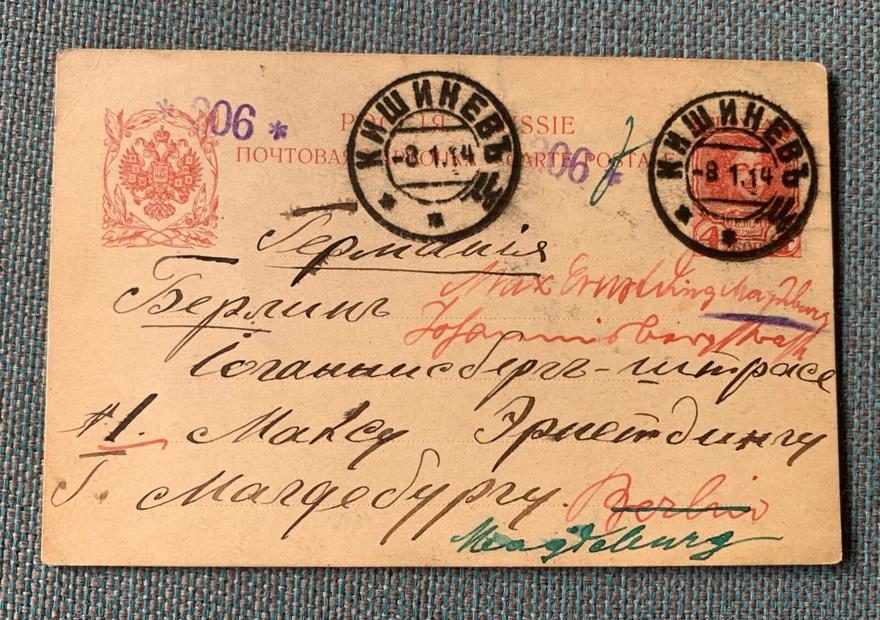 * 306 *
РОССІЯ RUSSIE
ПОЧТОВАЯ CARTE POSTALE
306 *
КИШИНЕВЪ
-8.1.14
КИШИНЕВЪ
-8 1.14
Германія
Берлинъ
Max Magdeburg
Іоганнисбергъ-штрасе
#1. Максу Эрнстдингу
Г. Магдебургу. Berlin
Magdeburg